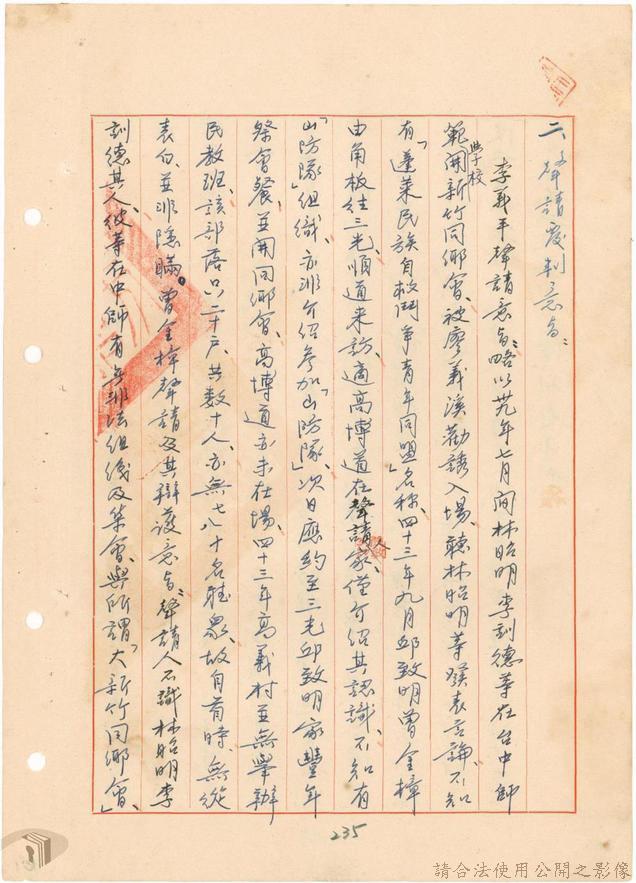 二、聲請覆判意旨：
李義平聲請意旨：略以卅九年七月間林昭明李訓德等在台中師
範學校開新竹同鄉會、被廖義溪勸誘入場、聽林昭明等發表言論、不知
有「蓬萊民族自救鬥爭青年同盟」名稱、四十三年九月邱致明曾金樟
由角板往三光順道來訪、適高博道在聲請人家、僅介紹其認識、不知有
「山防隊」組織、亦非介紹參加「山防隊」、次日應約至三光邱致明家豐年
祭會餐、並開同鄉會、高博道亦未在場、四十三年高義村並無舉辦
民教班、該部落只二十戶、共數十人、亦無七八十名聽眾、故自首時、無從
表白、並非隱瞞。曾金樟聲請及其辯護意旨：聲請人不識林昭明李
訓德其人、彼等在中師有無非法組織及集會、與所謂「大新竹同鄉會」、
235
請合法使用公開之影像